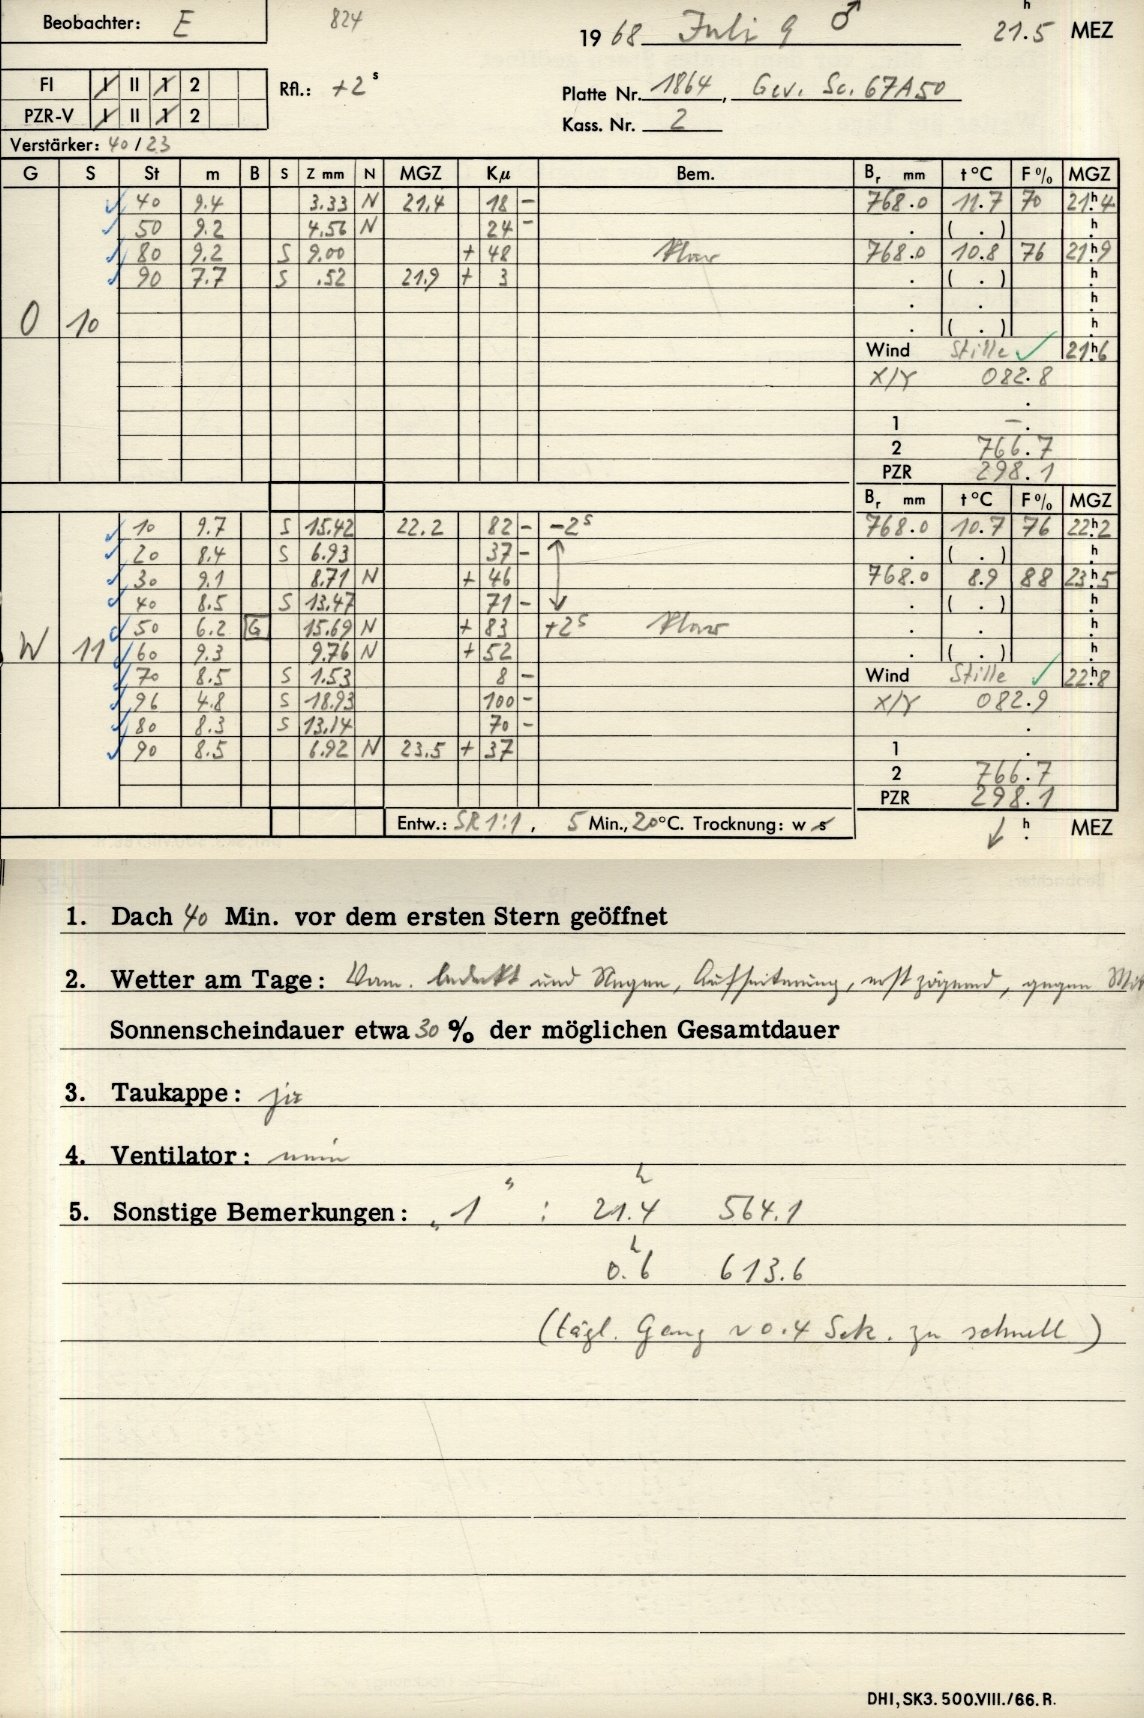 Beobachter: E 824 19 68 Juli 9 ♂ 21.5 h MEZ
FI I II 1 2 Rfl.: +2 s Platte Nr. 1864, Gev. Sc. 67A50
PZR-V I II 1 2 Kass. Nr. 2
Verstärker: 40/23
G S St m B S Z mm N MGZ Kμ Bem. Br mm t °C F % MGZ
40 9.4 3.33 N 21.4 18 - 768.0 11.7 70 21h4
50 9.2 4.56 N 24 - . ( . ) h
80 9.2 S 9.00 + 48 klar 768.0 10.8 76 21h9
90 7.7 S .52 21.9 + 3 . ( . ) h
. . h
O 10 . ( . ) h
Wind Stille ✓ 21h6
X/Y 082.8
.
1 -.
2 766.7
PZR 298.1
Br mm t °C F % MGZ
10 9.7 S 15.42 22.2 82 - -2 s 768.0 10.7 76 22h2
20 8.4 S 6.93 37 - . ( . ) h
30 9.1 8.71 N + 46 768.0 8.9 88 23h5
40 8.5 S 13.47 71 - . ( . ) h
50 6.2 G 15.69 N + 83 +2 s klar . . h
W 11 60 9.3 9.76 N + 52 . ( . ) h
70 8.5 S 1.53 8 - Wind Stille ✓ 22h8
96 4.8 S 18.93 100 - X/Y 082.9
80 8.3 S 13.14 70 - .
90 8.5 6.92 N 23.5 + 37 1 .
2 766.7
PZR 298.1
Entw.: SR 1:1, 5 Min., 20°C. Trocknung: w s h MEZ
1. Dach 40 Min. vor dem ersten Stern geöffnet
2. Wetter am Tage: Vorm. bedeckt und Regen, Aufheiterung, erst zögernd, gegen
Sonnenscheindauer etwa 30 % der möglichen Gesamtdauer
3. Taukappe: ja
4. Ventilator: nein
5. Sonstige Bemerkungen: „1“ : 21.4 h 564.1
0.6 h 613.6
(tägl. Gang ~0.4 Sek. zu schnell)
DHI, SK3. 500.VIII./66. R.